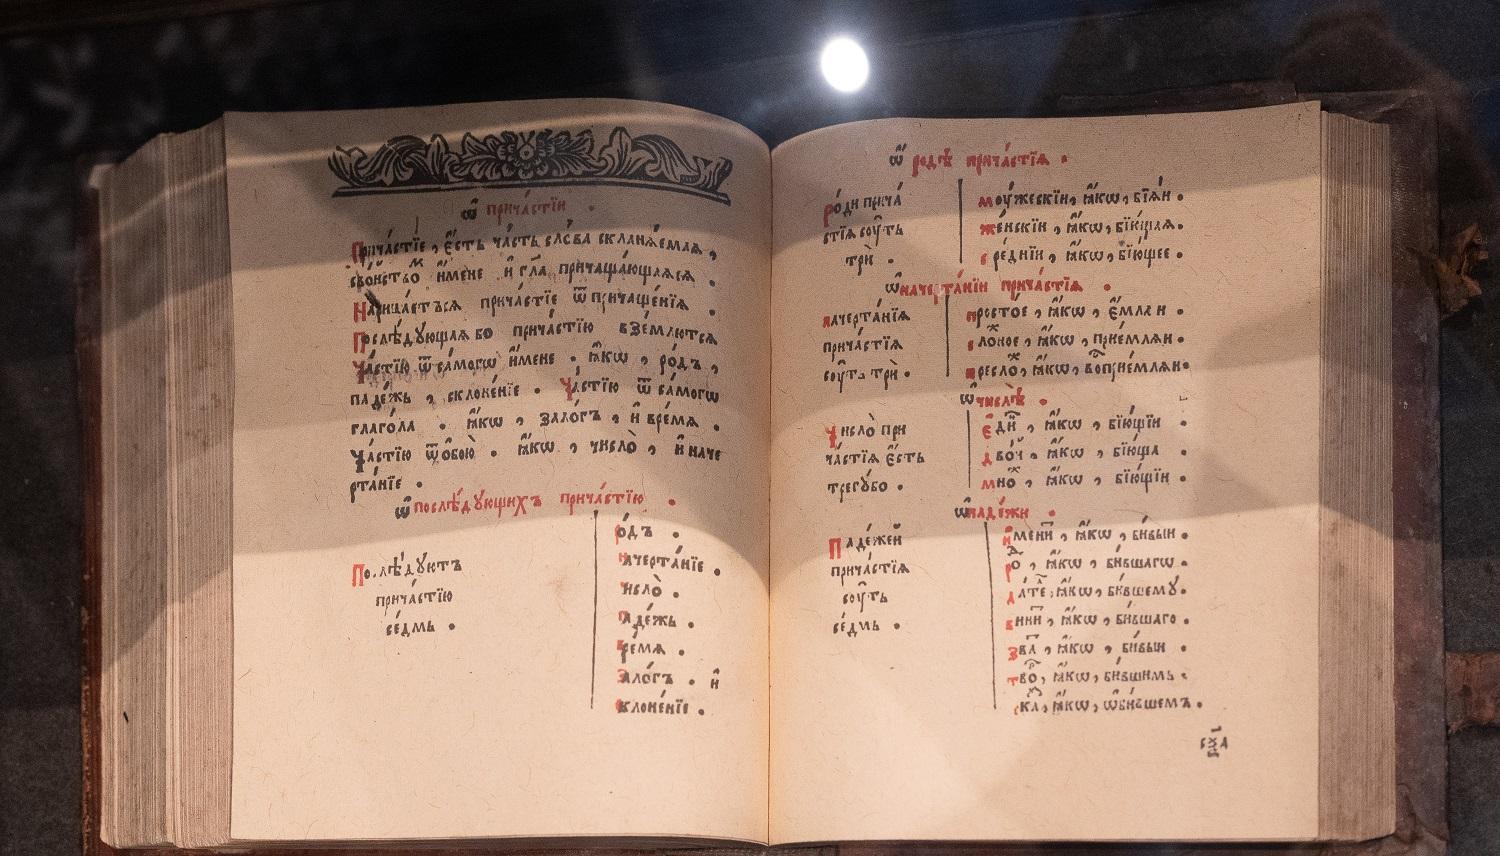 ѿ прича́стїи .
Прича́стїе , є҆́сть ча́сть сло́ва скланѧ́емаѧ ,
сво́йство и҆́мене и҆ гл҃а причаща́ющаѧсѧ .
Нарица́етъсѧ прича́стїе ѿ причаще́нїѧ .
Послѣ́дующаѧ бо прича́стїю взе́млютсѧ
Ча́стїю ѿ са́могѡ и҆́мене . ꙗ҆́кѡ , ро́дъ ,
паде́жь , склоне́нїе . Ча́стїю ѿ са́могѡ
глаго́ла . ꙗ҆́кѡ , зало́гъ , и҆ вре́мѧ .
Ча́стїю ѿ ѻ҆бою̀ . ꙗ҆́кѡ , число̀ , и҆ наче
рта́нїе .
ѿ послѣ́дующихъ прича́стїю .
Послѣ́дуютъ
прича́стїю
се́дмь .
ро́дъ .
начерта́нїе .
число̀ .
паде́жь .
вре́мѧ .
зало́гъ . и҆
склоне́нїе .
ѿ ро́дѣ прича́стїѧ .
Ро́ди прича́
стїѧ су́ть
трѝ .
му́жескїи , ꙗ҆́кѡ , бїѧ́и .
же́нскїи , ꙗ҆́кѡ , бїю́щаѧ .
сре́днїи , ꙗ҆́кѡ , бїю́щее .
ѿ начерта́нїи прича́стїѧ .
начерта́нїѧ
прича́стїѧ
су́ть трѝ .
просто́е , ꙗ҆́кѡ , є҆́млѧи .
сло́жное , ꙗ҆́кѡ , прїе́млѧи .
пресло́ж , ꙗ҆́кѡ , вопрїе́млѧи .
ѿ числѣ̀ .
Число̀ при
ча́стїѧ є҆́сть
трегу́бо .
є҆ди́н , ꙗ҆́кѡ , бїю́щїи .
дво́й , ꙗ҆́кѡ , бїю́ща .
мно́ж , ꙗ҆́кѡ , бїю́щїи .
ѿ паде́жи .
Паде́жей
прича́стїѧ
су́ть
се́дмь .
и҆́менит , ꙗ҆́кѡ , би́выи .
ро́д , ꙗ҆́кѡ , би́вшагѡ .
да́тел , ꙗ҆́кѡ , би́вшему .
вини́т , ꙗ҆́кѡ , би́вшаго .
зва́т , ꙗ҆́кѡ , би́выи .
тво́р , ꙗ҆́кѡ , би́вшимь .
ска́з , ꙗ҆́кѡ , ѡ҆ би́вшемъ .